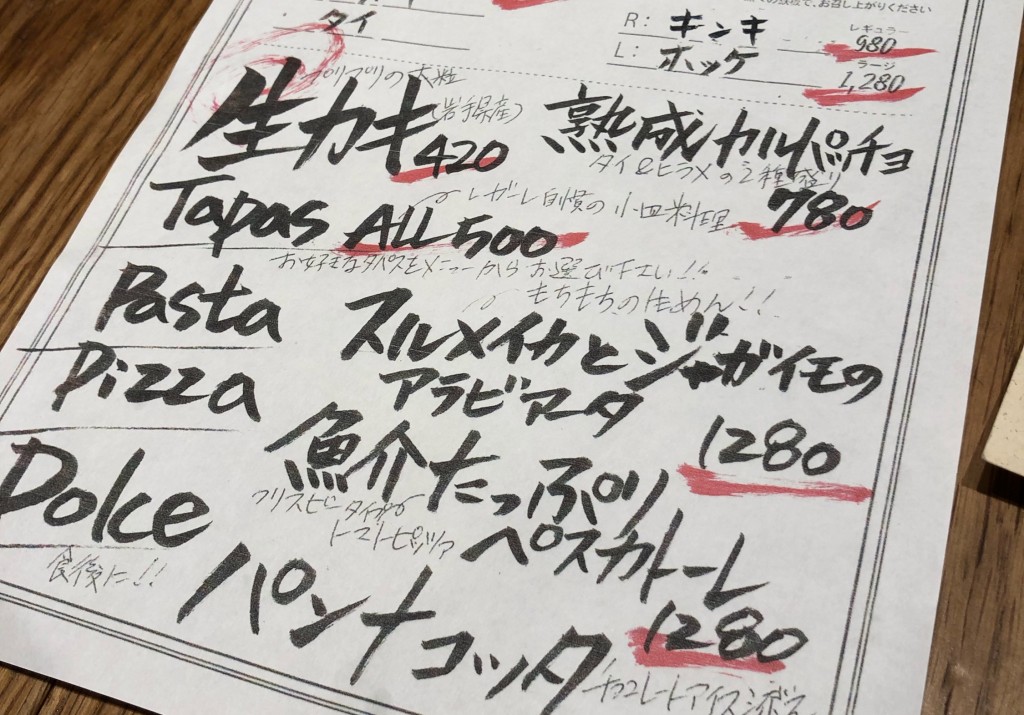 の鉄板で、お召し上がりください
タイ
R: キンキ
レギュラー
980
L: ホッケ
ラージ
1,280
プリプリの大粒
生カキ
(岩手県産)
420
熟成カルパッチョ
タイ&ヒラメの2種盛り
780
Tapas ALL 500
レガーレ自慢の小皿料理
お好きなタパスをメニューからお選び下さい!!
Pasta
もちもちの生めん!!
スルメイカとジャガイモの
アラビアータ
1280
Pizza
魚介たっぷり
ペスカトーレ
トマトピッツァ
1280
Dolce
食後に!!
パンナコッタ
チョコレートアイス